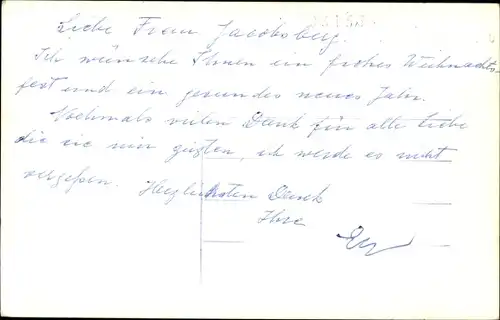 Liebe Frau Jacobsberg.
Ich wünsche Ihnen ein frohes Weihnachts-
fest und ein gesundes neues Jahr.
Nochmals vielen Dank für alle Liebe
die sie mir zeigten, ich werde es nicht
vergeßen. Herzlichsten Dank
Ihre